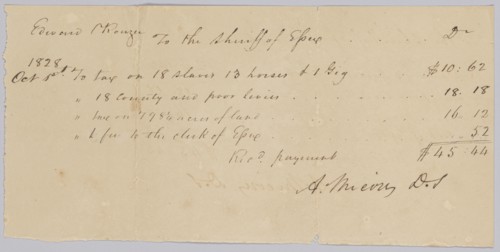 Edward Rouzee To the Sheriff of Essex Dr
1828
Oct 1st To tax on 18 slaves 13 horses & 1 Gig $10:62
" 18 county and poor levies 18.18
" tax on 1794 acres of land 16.12
" fee to the clerk of Essex 52
Recd. payment $45 44
A. Micou D.S